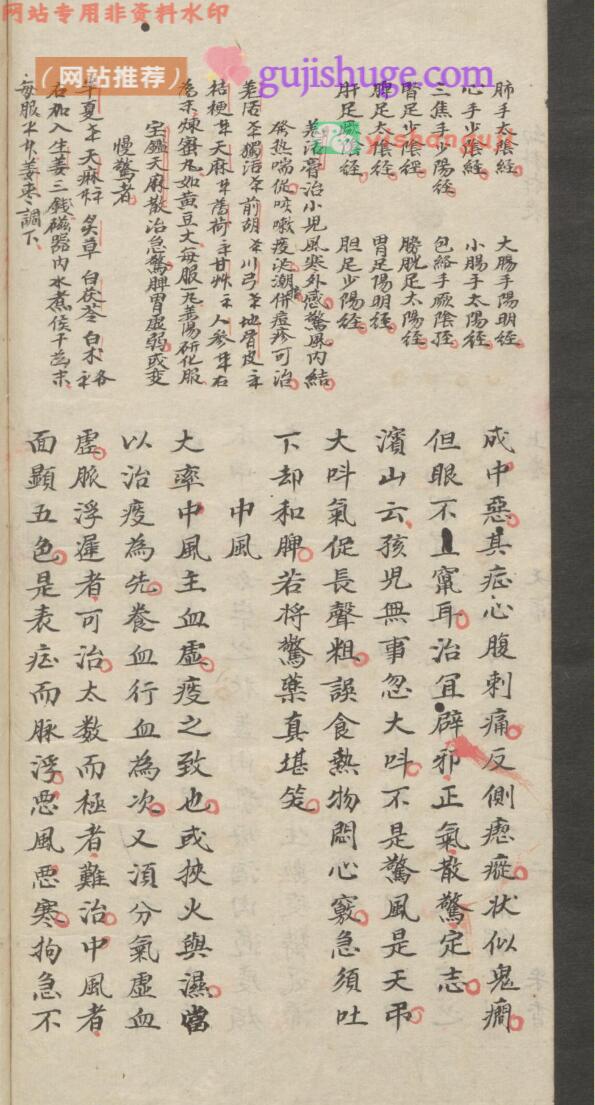 网站专用非资料水印
(网站推荐)
gujishuge.com
yishanguji
肺手太陰經 大腸手陽明經
心手少陰經 小腸手太陽經
三焦手少陽経 包絡手厥陰経
腎足少陰経 膀胱足太陽経
脾足太陰経 胃足陽明経
肝足厥陰経 胆足少陽経
羗活膏治小児風寒外感驚風内結
發热喘促咳嗽痰涎潮併痘疹可治
羗活 獨活 前胡 川弓 地骨皮
桔梗 天麻 薄荷 甘艸 人参 右
為末煉蜜丸如黄豆大每服一丸姜湯研化服
宝鑑天麻散治急驚脾胃虚弱或变
慢驚者
半夏 天麻 炙草 白茯苓 白术 各
右加入生姜三錢磁器内水煮侯干為末
每服 姜枣調下
成中惡其症心腹刺痛反側瘛瘲状似鬼癎
但眼不上竄耳治宜辟邪正氣散驚定志
濱山云孩児無事忽大呌不是驚風是天吊
大呌氣促長聲粗誤食熱物悶心竅急須吐
下却和脾若将驚藥真堪笑
中風
大率中風主血虛痰之致也或挾火與濕當
以治痰為先養血行血為次又湏分氣虛血
虛脈浮遲者可治太数而極者難治中風者
面顕五色是表症而脉浮惡風惡寒拘急不